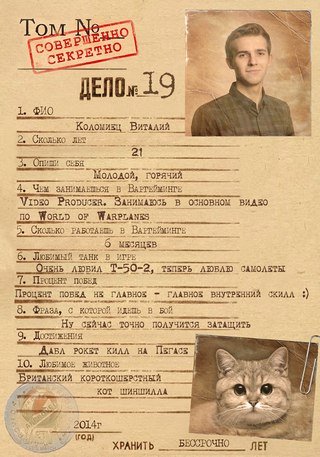 Том №
СОВЕРШЕННО
СЕКРЕТНО
ДЕЛО № 19
1. ФИО
Коломиец Виталий
2. Сколько лет
21
3. Опиши себя
Молодой, горячий
4. Чем занимаешься в Варгейминге
Video Producer. Занимаюсь в основном видео
по World of Warplanes
5. Сколько работаешь в Варгейминге
6 месяцев
6. Любимый танк в игре
Очень любил Т-50-2, теперь люблю самолеты
7. Процент побед
Процент побед не главное - главное внутренний скилл :)
8. Фраза, с которой идешь в бой
Ну сейчас точно получится затащить
9. Достижения
Дабл рокет килл на Пегасе
10. Любимое животное
Британский короткошерстный
кот шиншилла
2014г
(год)
ХРАНИТЬ БЕССРОЧНО ЛЕТ